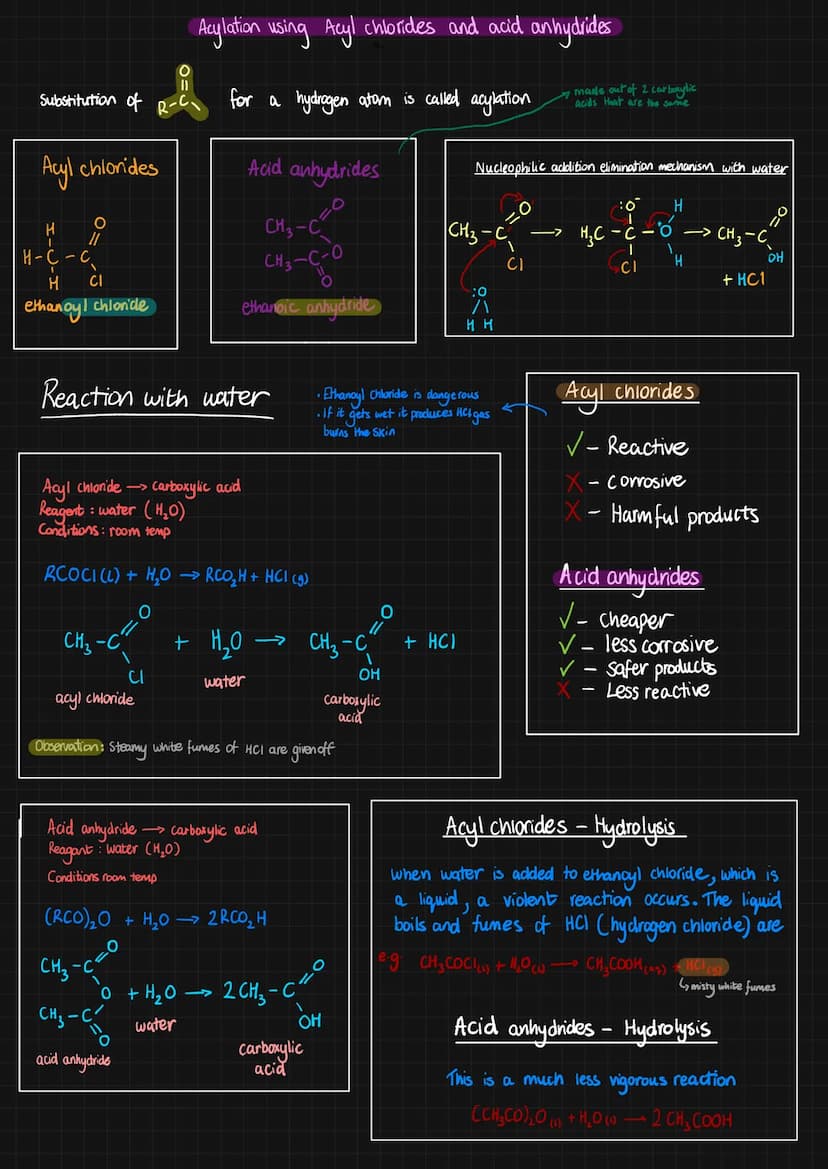 Acylation using Acyl chlorides and acid anhydrides
Substitution of R-C=O for a hydrogen atom is called acylation
made out of 2 carboxylic
acids that are the same
Acyl chlorides
H O
H-C-C
H Cl
ethanoyl chloride
Acid anhydrides
O
CH₃-C
O
CH₃-C
O
ethanoic anhydride
Nucleophilic addition elimination mechanism with water
CH₃-C O Cl → H₃C-C :O⁻ Cl O H H → CH₃-C O OH
+ HCl
:O
H H
Reaction with water
• Ethanoyl Chloride is dangerous
• If it gets wet it produces HCl gas
burns the skin
Acyl chlorides
✓ - Reactive
X - corrosive
X - Harmful products
Acid anhydrides
✓ - cheaper
✓ - less corrosive
✓ - safer products
X - Less reactive
Acyl chloride → carboxylic acid
Reagent : water (H₂O)
Conditions : room temp
RCOCl(l) + H₂O → RCO₂H + HCl(g)
O O
CH₃-C + H₂O → CH₃-C + HCl
Cl OH
acyl chloride water carboxylic
acid
Observation: Steamy white fumes of HCl are given off
Acid anhydride → carboxylic acid
Reagant : water (H₂O)
Conditions room temp
(RCO)₂O + H₂O → 2RCO₂H
O
CH₃-C O
O + H₂O → 2CH₃-C
CH₃-C OH
O
acid anhydride water carboxylic
acid
Acyl chlorides - Hydrolysis
When water is added to ethanoyl chloride, which is
a liquid, a violent reaction occurs. The liquid
boils and fumes of HCl (hydrogen chloride) are
e.g. CH₃COCl(l) + H₂O(l) → CH₃COOH(aq) + HCl(g)
↳ misty white fumes
Acid anhydrides - Hydrolysis
This is a much less vigorous reaction
(CH₃CO)₂O(l) + H₂O(l) → 2CH₃COOH